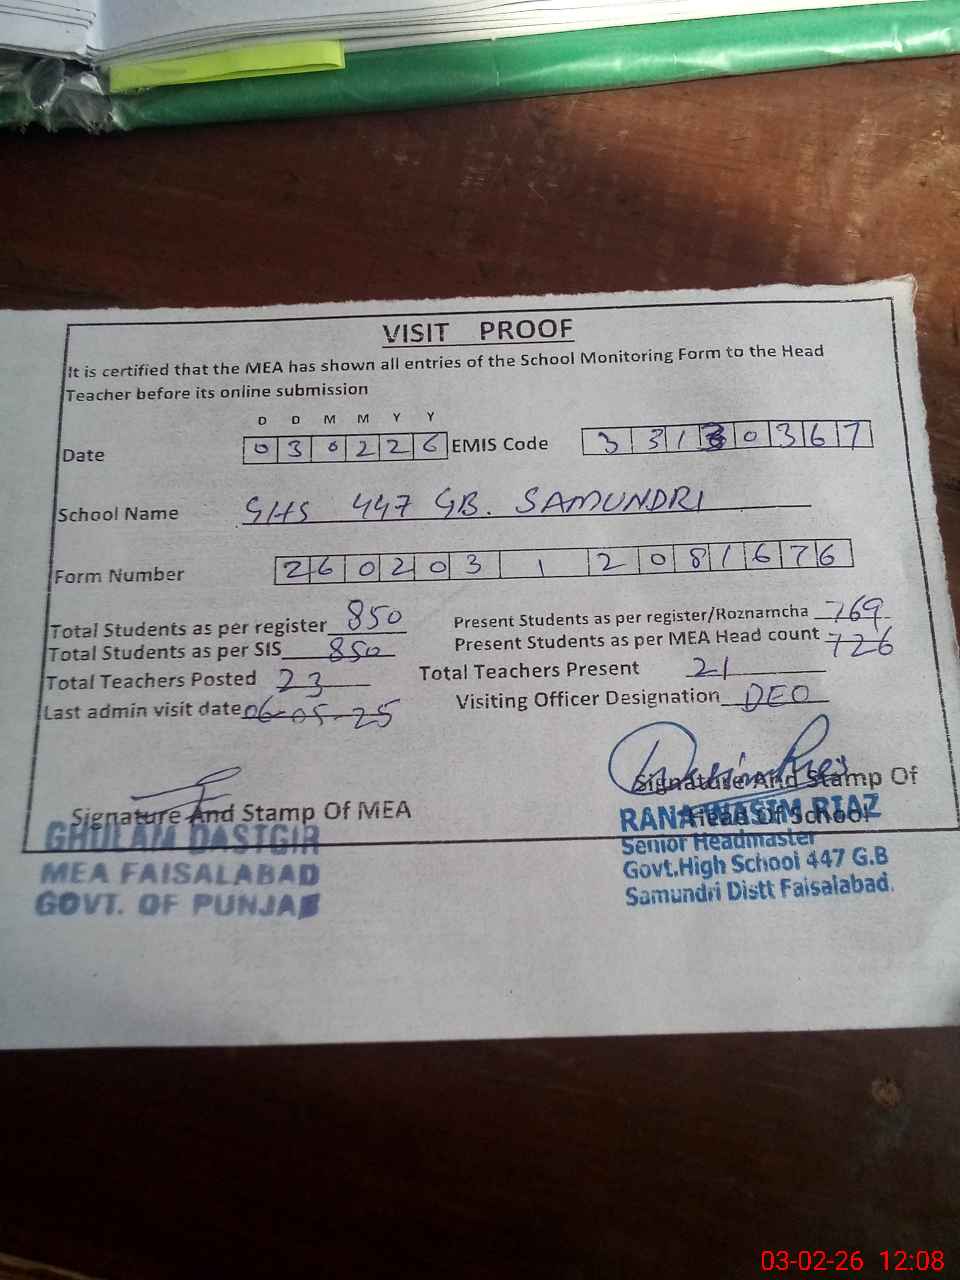 VISIT PROOF
It is certified that the MEA has shown all entries of the School Monitoring Form to the Head
Teacher before its online submission
D D M M Y Y
Date 0 3 0 2 2 6 EMIS Code 3 3 1 3 0 3 6 7
School Name GHS 447 GB. SAMUNDRI
Form Number 2 6 0 2 0 3 1 2 0 8 1 6 7 6
Total Students as per register 850 Present Students as per register/Roznamcha 769
Total Students as per SIS 850 Present Students as per MEA Head count 726
Total Teachers Posted 23 Total Teachers Present 21
Last admin visit date 06-05-25 Visiting Officer Designation DEO
Signature And Stamp Of MEA
GHULAM DASTGIR
MEA FAISALABAD
GOVT. OF PUNJAB
Signature And Stamp Of
Head Of School
RANA WASIM RIAZ
Senior Headmaster
Govt.High School 447 G.B
Samundri Distt Faisalabad.
03-02-26 12:08